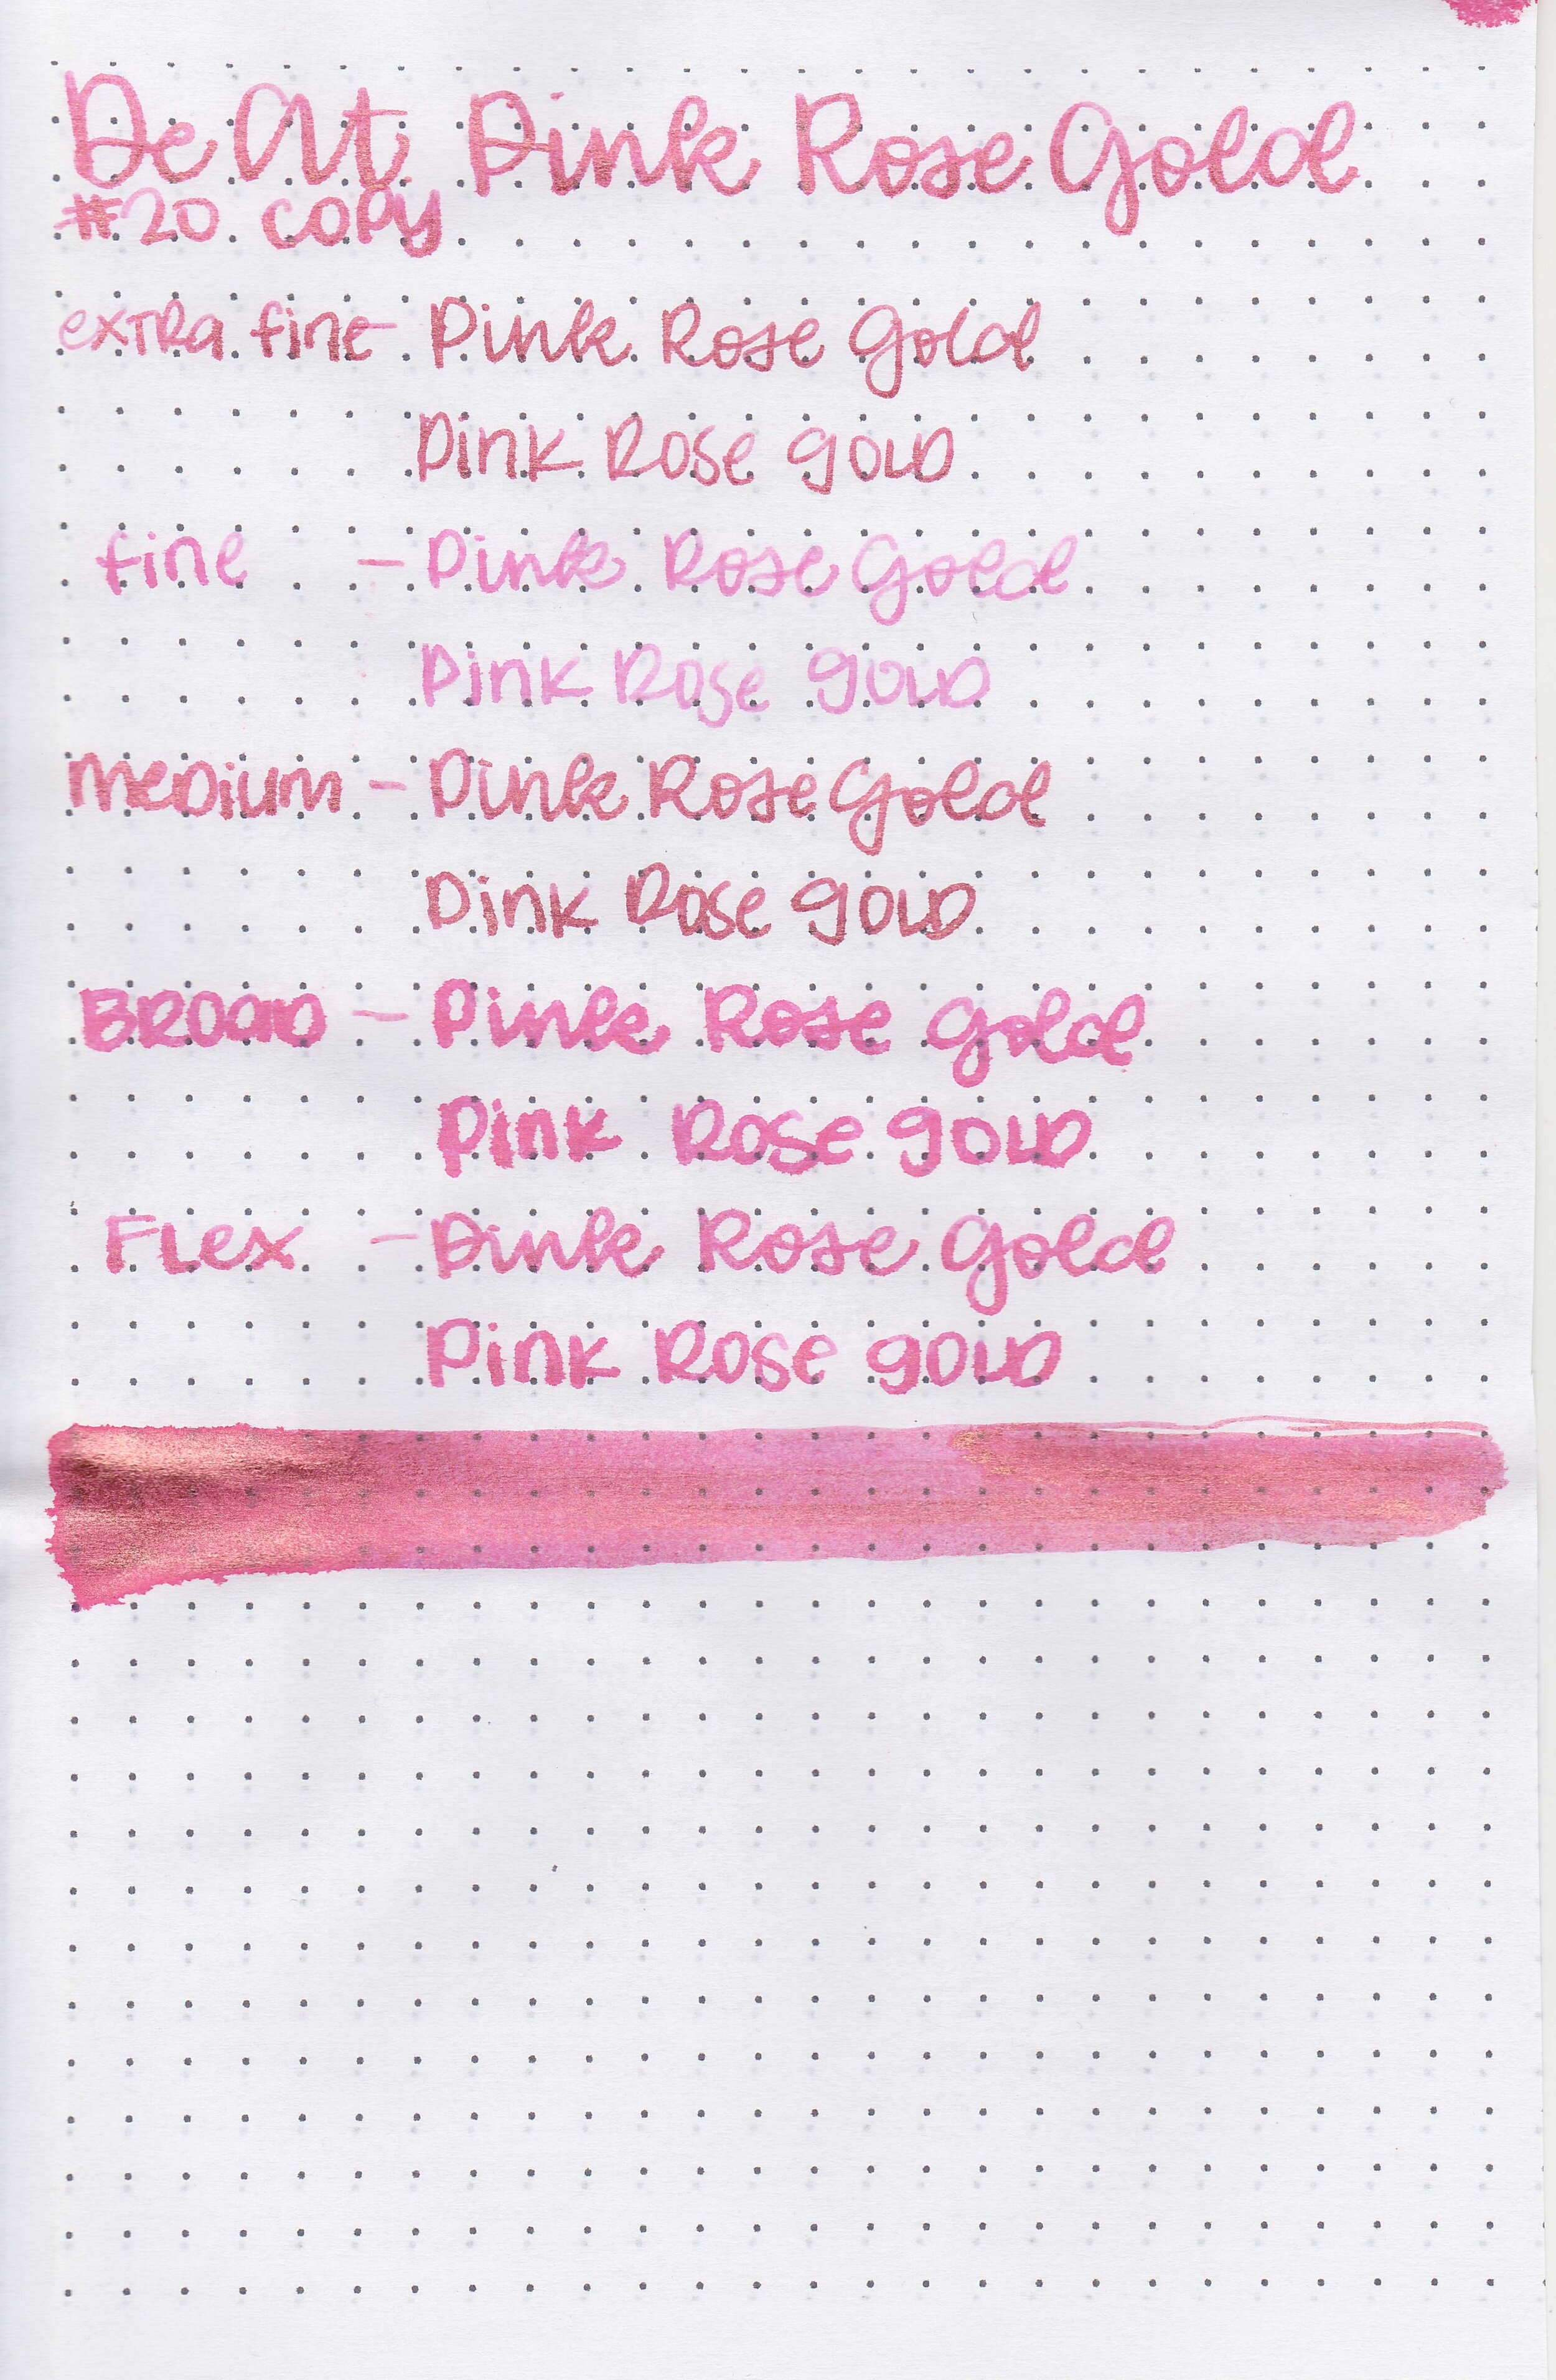 De Atr Pink Rose Gold
#20 copy
extra fine - Pink Rose Gold
Pink Rose Gold
fine - Pink Rose Gold
Pink Rose Gold
Medium - Pink Rose Gold
Pink Rose Gold
Broad - Pink Rose Gold
Pink Rose Gold
Flex - Pink Rose Gold
Pink Rose Gold